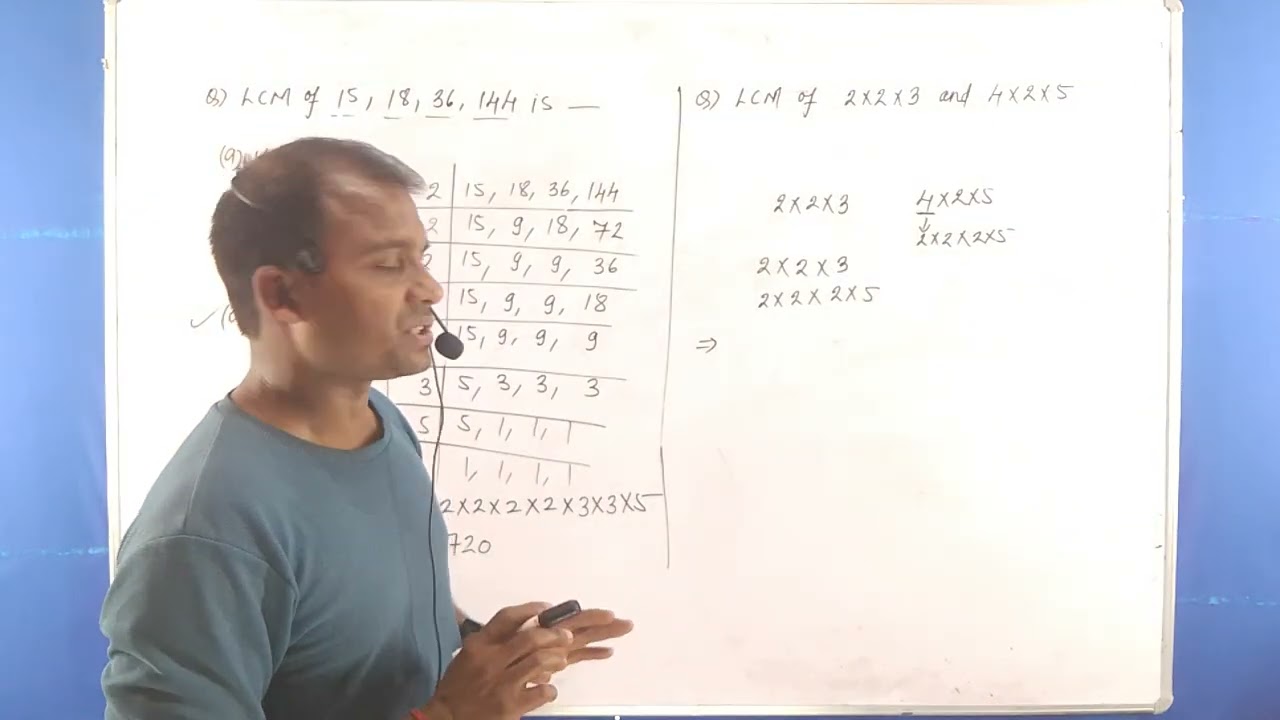 Q) LCM of 15, 18, 36, 144 is —
(a)
2 | 15, 18, 36, 144
2 | 15, 9, 18, 72
2 | 15, 9, 9, 36
15, 9, 9, 18
15, 9, 9, 9
3 | 5, 3, 3, 3
5 | 5, 1, 1, 1
1, 1, 1, 1
2×2×2×2×3×3×5
720
Q) LCM of 2×2×3 and 4×2×5
2×2×3 4×2×5
↓
2×2×2×5
2×2×3
2×2×2×5
⇒